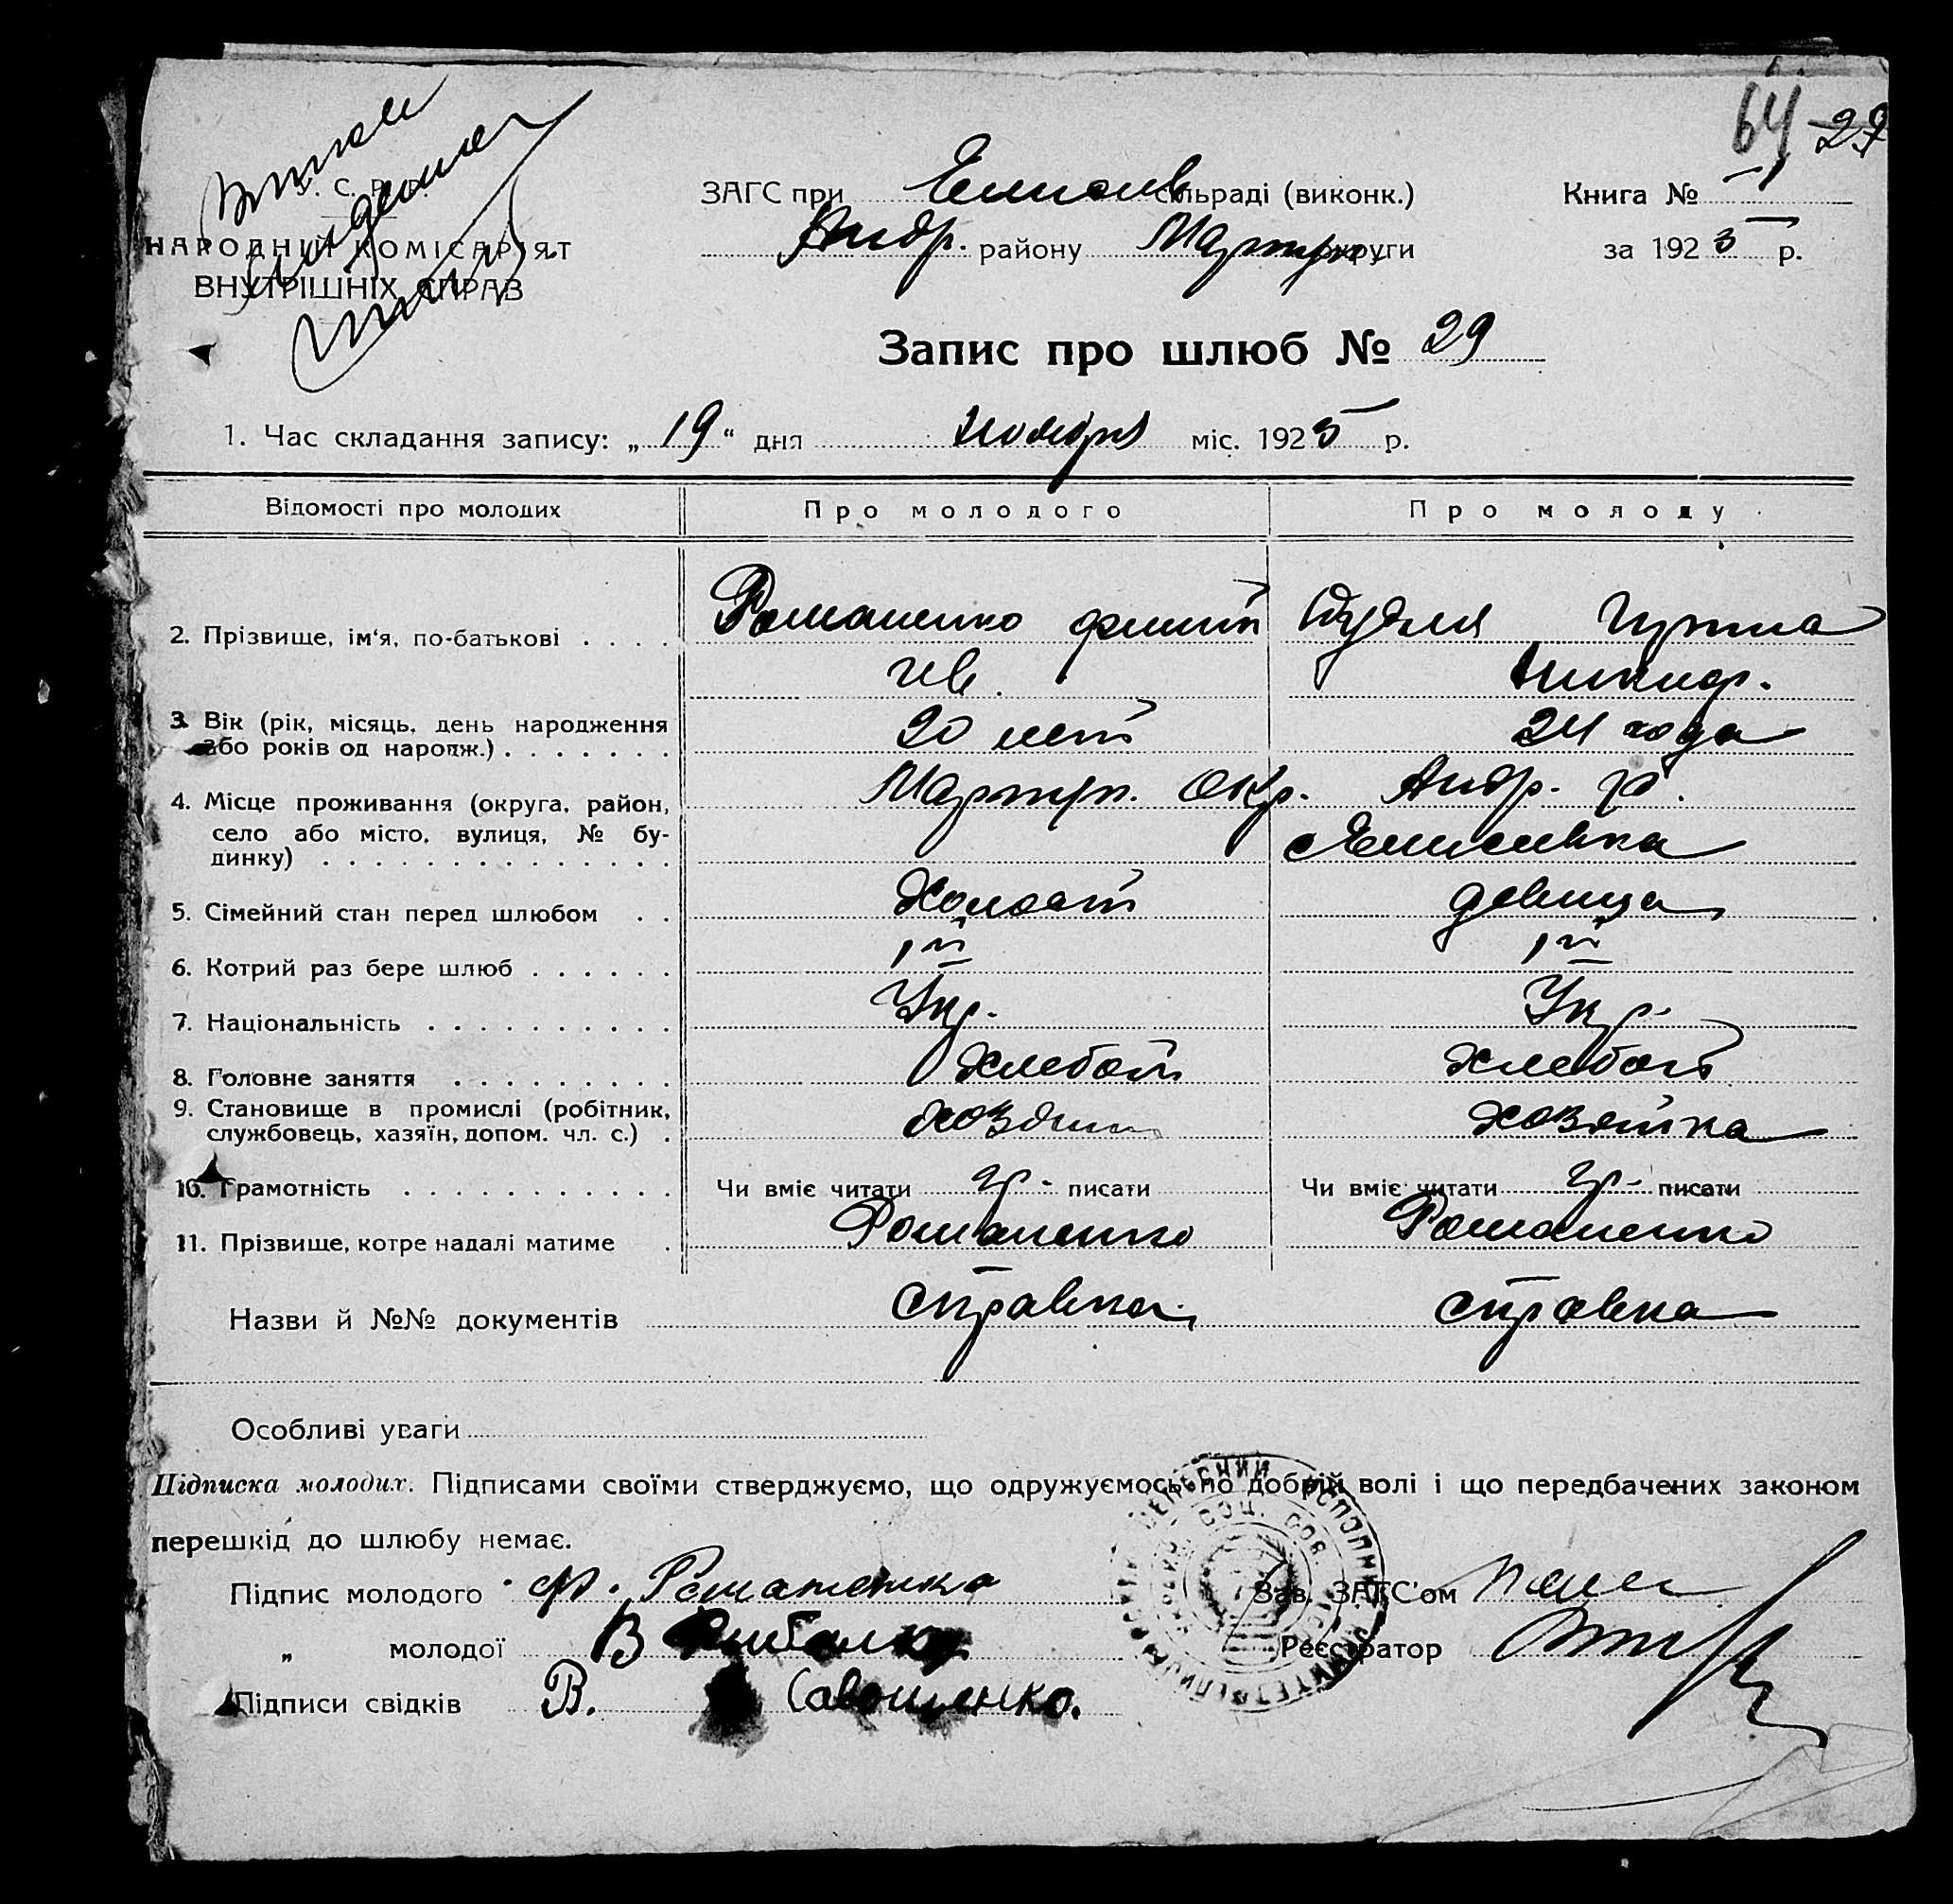 64 29
У. С. Р. Р.
НАРОДНІЙ КОМІСАРІЯТ
ВНУТРІШНІХ СПРАВ
ЗАГС при Елисеев сільраді (виконк.)
Андр. району Марiуп. округи
Книга № 1
за 1925 р.
Запис про шлюб № 29
1. Час складання запису: „19“ дня ноября міс. 1925 р.
Відомості про молодих Про молодого Про молоду
2. Прізвище, ім'я, по-батькові . . . . Романенко Филип
Ив. Никиф.
3. Вік (рік, місяць, день народження
або років од народж.) . . . . . . . 20 лет 24 года
4. Місце проживання (округа, район, Мариуп. Окр. Андр. р.
село або місто, вулиця, № бу-
динку) . . . . . . . . . . . . . . с Елисеевка
5. Сімейний стан перед шлюбом . . Холост девица
6. Котрий раз бере шлюб . . . . . . 1й 1й
7. Національність . . . . . . . . . . Укр. Укр.
8. Головне заняття . . . . . . . . . Хлебоп Хлебоп
9. Становище в промислі (робітник,
службовець, хазяїн, допом. чл. с.) . хозяин хозяйка
10. Грамотність . . . . . . . . . . . Чи вміє читати гр. писати Чи вміє читати гр. писати
11. Прізвище, котре надалі матиме . Романенко Романенко
Назви й №№ документів справка справка
Особливі уваги
Підписка молодих. Підписами своїми стверджуємо, що одружуємось по добрій волі і що передбачених законом
перешкід до шлюбу немає.
Підпис молодого Ф. Романенко Зав. ЗАГС'ом
„ молодої В Реєстратор
Підписи свідків В. Савошенко.